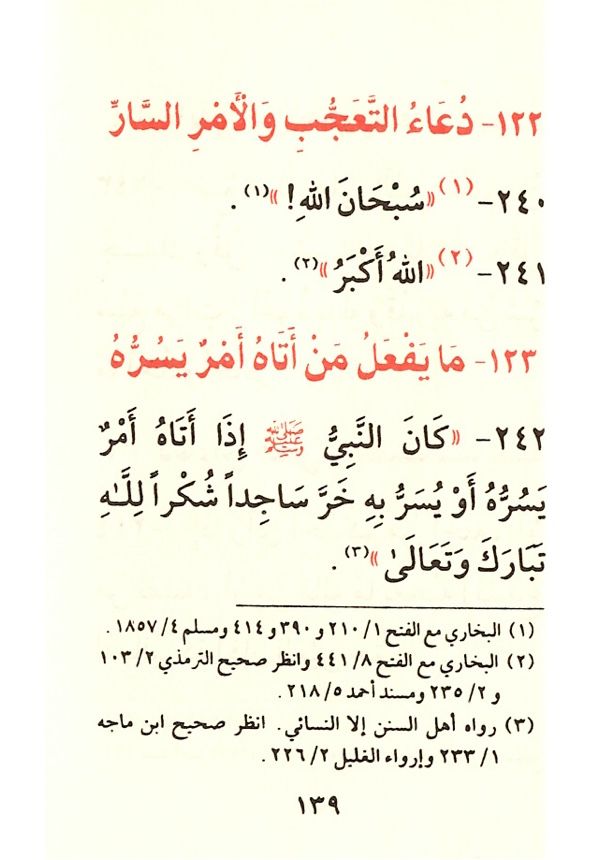 ١٢٢- دُعَاءُ التَّعَجُّبِ وَالْأَمْرِ السَّارِّ
٢٤٠- (١) «سُبْحَانَ اللهِ!» (١).
٢٤١- (٢) «اللهُ أَكْبَرُ» (٢).
١٢٣- مَا يَفْعَلُ مَنْ أَتَاهُ أَمْرٌ يَسُرُّهُ
٢٤٢- «كَانَ النَّبِيُّ ﷺ إِذَا أَتَاهُ أَمْرٌ
يَسُرُّهُ أَوْ يُسَرُّ بِهِ خَرَّ سَاجِداً شُكْراً لِلَّـهِ
تَبَارَكَ وَتَعَالَىٰ» (٣).
(١) البخاري مع الفتح ١/ ٢١٠ و ٣٩٠ و ٤١٤ ومسلم ٤/ ١٨٥٧.
(٢) البخاري مع الفتح ٨/ ٤٤١ وانظر صحيح الترمذي ٢/ ١٠٣
و ٢/ ٢٣٥ ومسند أحمد ٥/ ٢١٨.
(٣) رواه أهل السنن إلا النسائي. انظر صحيح ابن ماجه
١/ ٢٣٣ وإرواء الغليل ٢/ ٢٢٦.
١٣٩